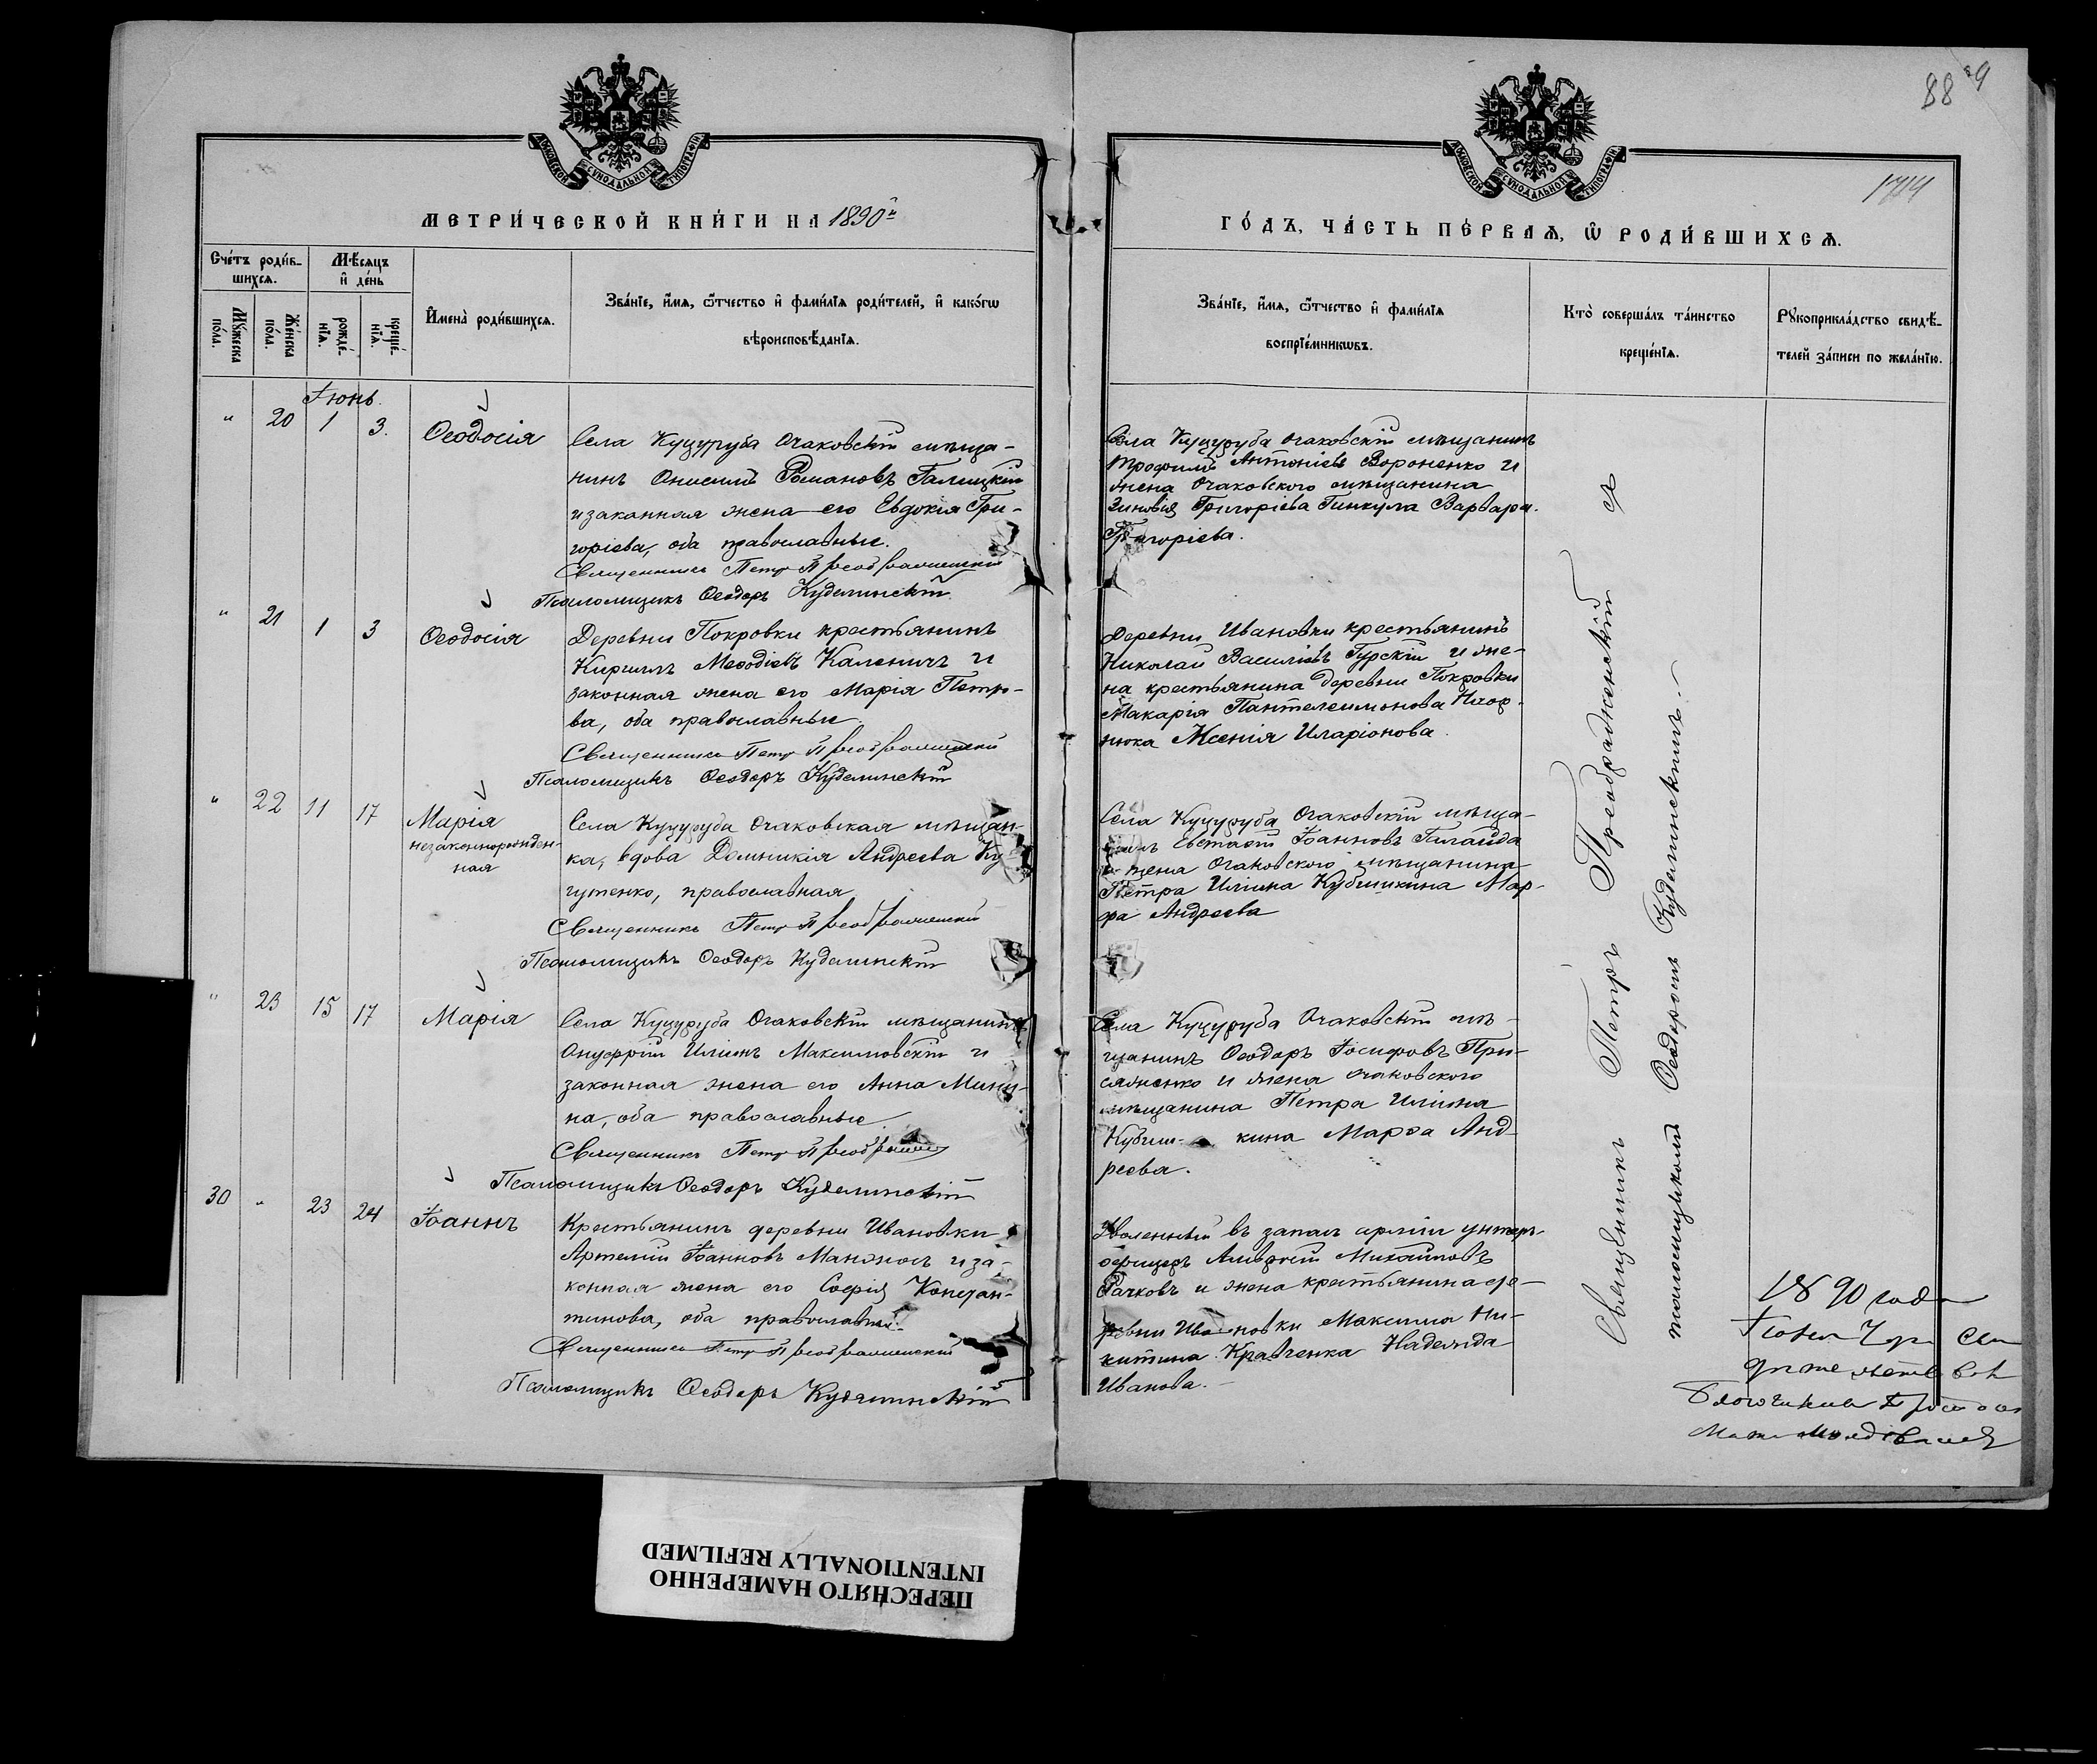 88
МЕТРИ́ЧЕСКОЙ КНИ́ГИ НА 1890й
ГО́ДЪ, ЧА́СТЬ ПЕ́РВАЯ, Ѡ РОДИ́ВШИХСЯ.
МОСКОВСКОЙ СѴНОДАЛЬНОЙ ТИПОГРАФІИ
МОСКОВСКОЙ СѴНОДАЛЬНОЙ ТИПОГРАФІИ
Сче́тъ роди́в-
шихся.
Мѣсяцъ
и҆ де́нь
Мꙋжеска по́ла.
Же́нска по́ла.
рожде́нїя.
креще́нїя.
И҆мена̀ роди́вшихся.
Зва́нїе, и҆́мя, ѻ҆́тчество и҆ фами́лїя роди́телей, и҆ како́гѡ
вѣроисповѣ́данїя.
Зва́нїе, и҆́мя, ѻ҆́тчество и҆ фами́лїя
воспрїе́мникѡвъ.
Кто̀ соверша́лъ та́инство
креще́нїя.
Рꙋкоприкла́дство свидѣ́-
телей за́писи по жела́нїю.
Іюнь
" 20 1 3. Ѳеодосія
Села Куцуруба Очаковскій мѣща-
нинъ Онисимъ Романовъ Галицкій
и законная жена его Евдокія Гри-
горіева, оба православные.
Священникъ Петръ Преображенскій
Псаломщикъ Ѳеодоръ Куделинскій
Села Куцуруба Очаковскій мѣщанинъ
Трофимъ Антоніевъ Вороненко и
жена Очаковскаго мѣщанина
Зиновія Григоріева Гинкула Варвара
Григоріева.
" 21 1 3 Ѳеодосія
Деревни Покровки крестьянинъ
Кириллъ Меѳодіевъ Каленичъ и
законная жена его Марія Петро-
ва, оба православные.
Священникъ Петръ Преображенскій
Псаломщикъ Ѳеодоръ Куделинскій
Деревни Ивановки крестьянинъ
Николай Василіевъ Гурскій и же-
на крестьянина деревни Покровки
Макарія Пантелеимонова
нюка Ксенія Иларіонова.
" 22 11 17 Марія
незаконнорожден-
ная
Села Куцуруба Очаковская мѣщан-
ка, вдова Домникія Андреева Ку-
гутенко, православная
Священникъ Петръ Преображенскій
Псаломщикъ Ѳеодоръ Куделинскій
Села Куцуруба Очаковскій мѣща-
нинъ Евстафій Іоанновъ
и жена Очаковского мѣщанина
Петра Иліина Кубышкина Мар-
ѳа Андреева
" 23 15 17 Марія
Села Куцуруба Очаковскій мѣщанинъ
Онуфрій Иліинъ Максимовскій и
законная жена его Анна Мини-
на, оба православные.
Священникъ Петръ Преображенскій
Псаломщикъ Ѳеодоръ Куделинскій
Села Куцуруба Очаковскій мѣ-
щанинъ Ѳеодоръ Іосифовъ При-
сяженко и жена Очаковского
мѣщанина Петра Иліина
Кубыш- кина Марѳа Анд-
реева.
30 " 23 24 Іоаннъ
Крестьянинъ деревни Ивановки
Артемій Іоанновъ Манжосъ и за-
конная жена его Софія Констан-
тинова, оба православные.
Священникъ Петръ Преображенскій
Псаломщикъ Ѳеодоръ Куделинскій
Уволенный въ запасъ арміи унтеръ-
офицеръ Амвросій Михайловъ
Рачковъ и жена крестьянина де-
ревни Ивановки Максима Ни-
китина Кравченка Надежда
Иванова.
Священникъ Петръ Преображенскій съ
псаломщикомъ Ѳеодоромъ Куделинскимъ.
1890 года
ПЕРЕСНЯТО НАМЕРЕННО
INTENTIONALLY REFILMED